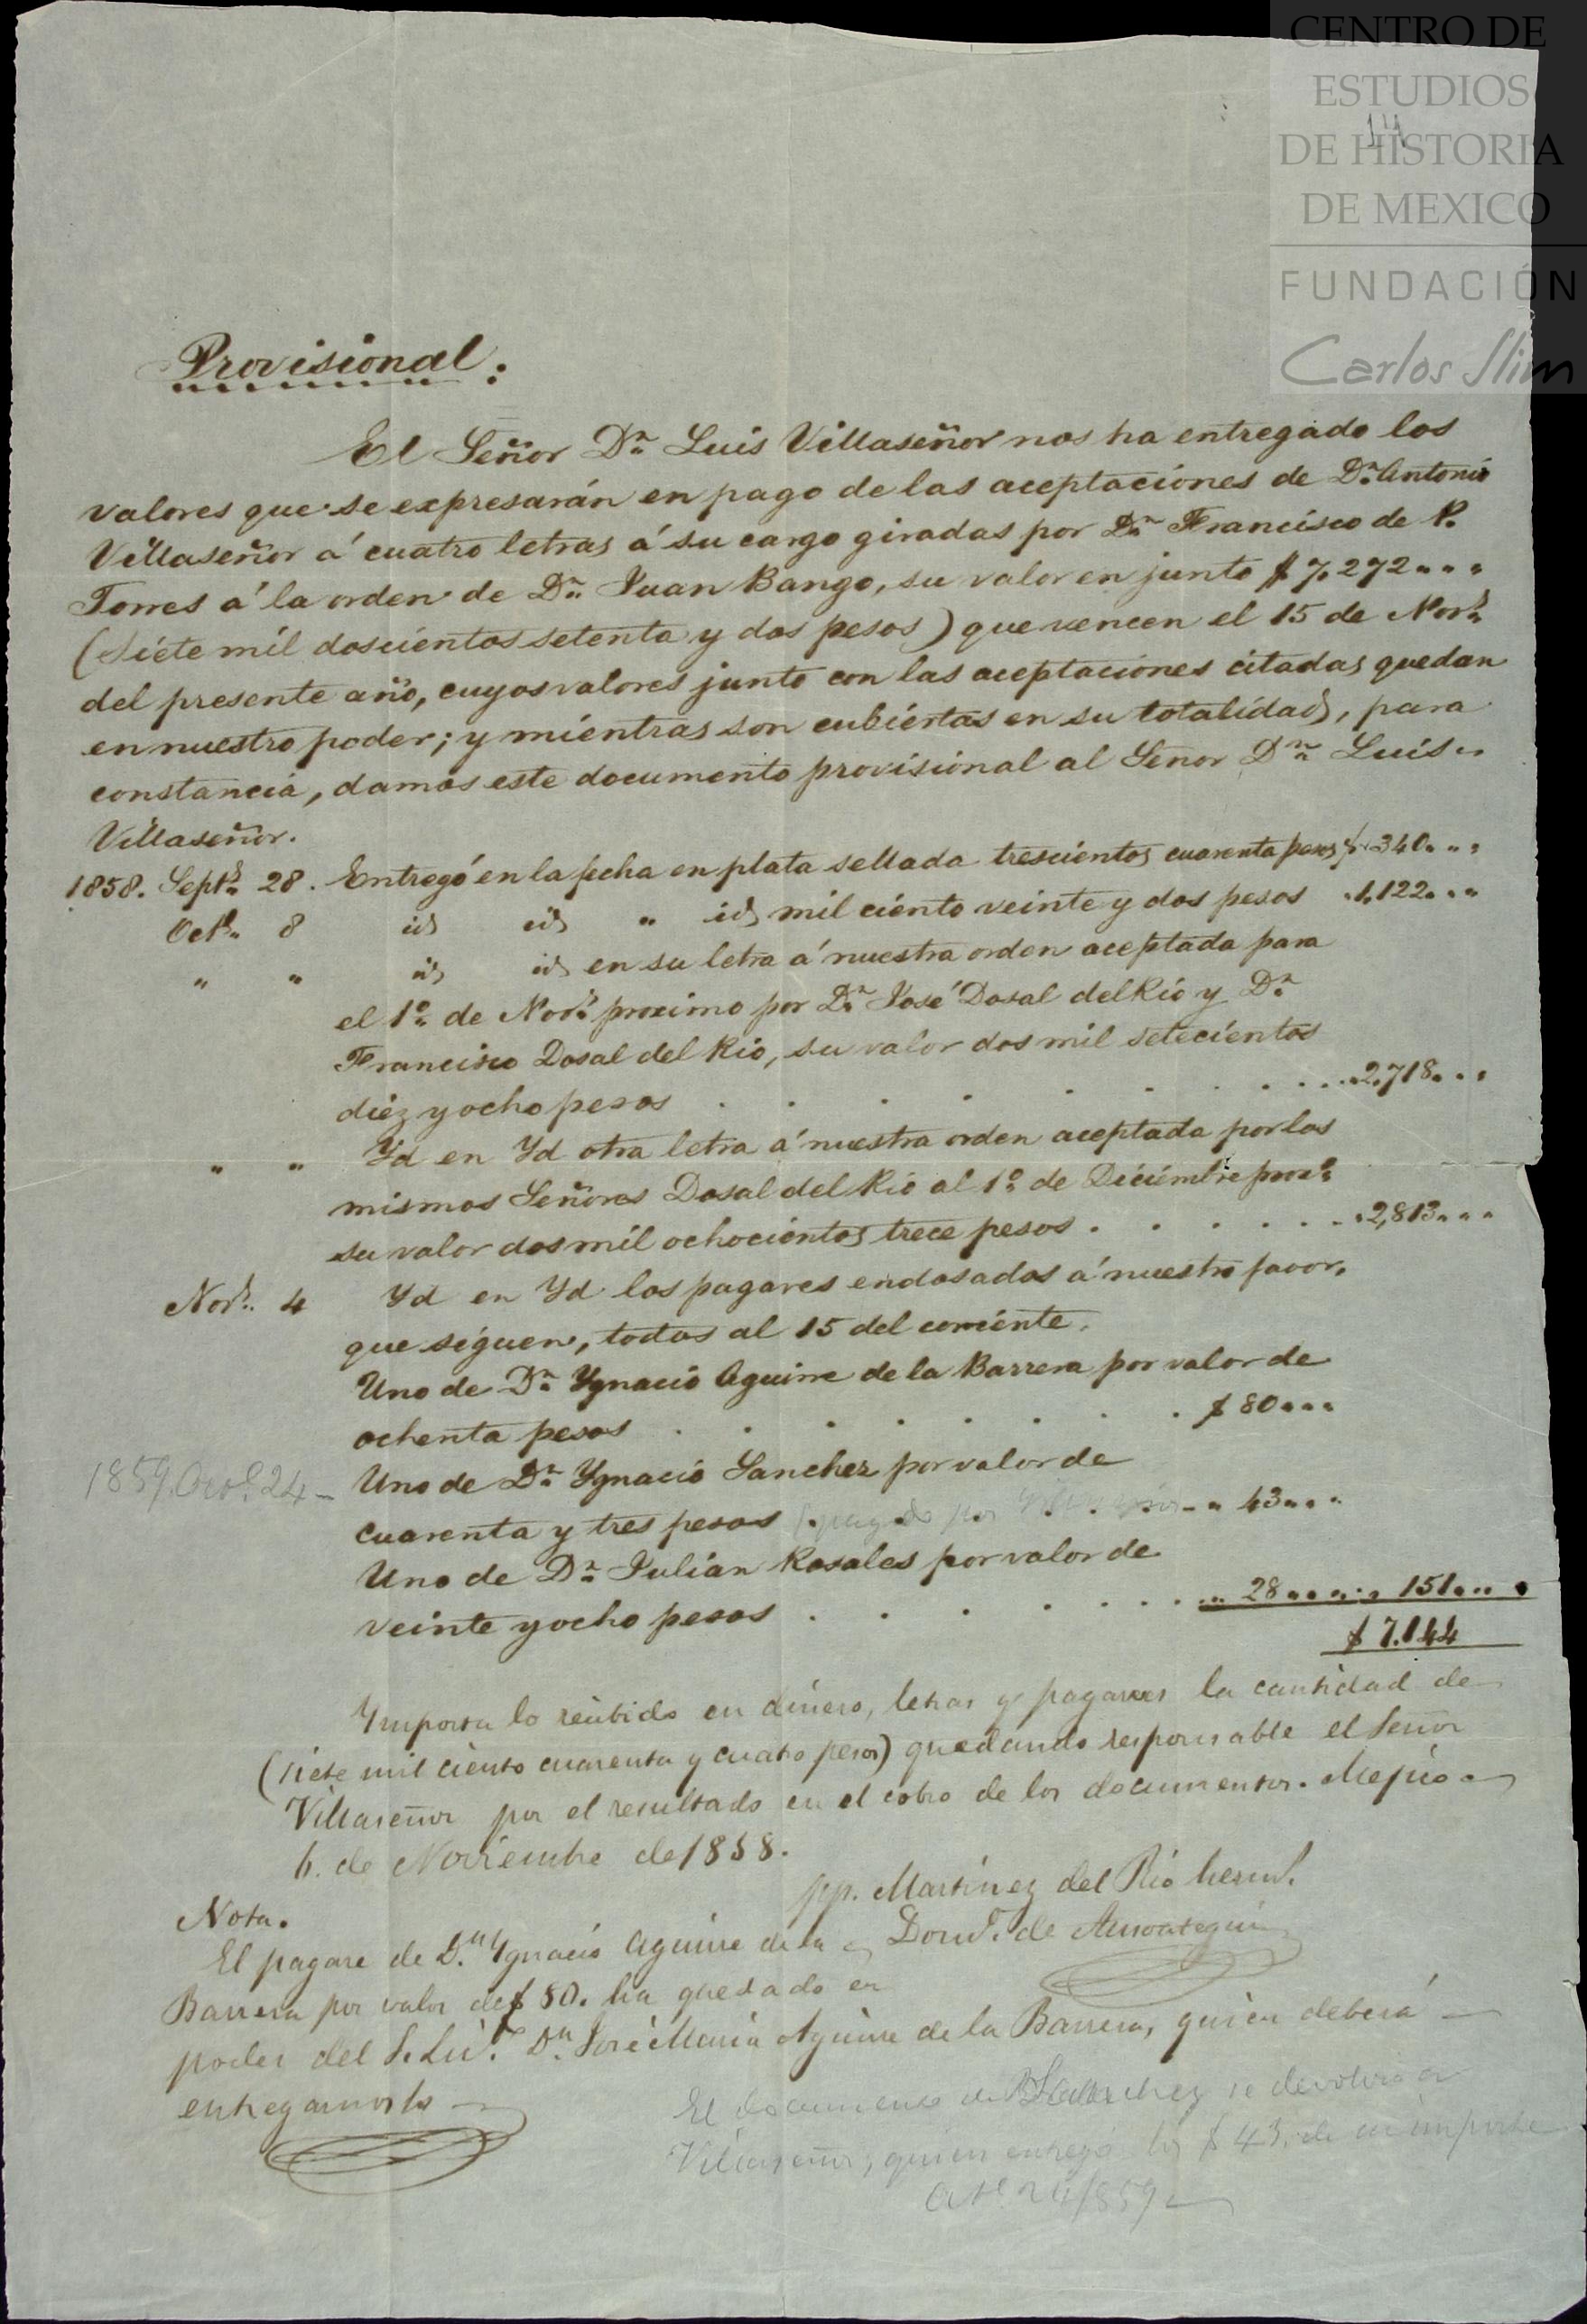 CENTRO DE
ESTUDIOS
DE HISTORIA
DE MEXICO
FUNDACIÓN
Carlos Slim
Provisional.
El Señor Dn. Luis Villaseñor nos ha entregado los
valores que se expresarán en pago de las aceptaciones de Dn. Antonio
Villaseñor á cuatro letras á su cargo giradas por Dn. Francisco de P.
Torres á la orden de Dn. Juan Bango, su valor en junto $7.272 " " "
(Siete mil doscientos setenta y dos pesos) que vencen el 15 de Nove.
del presente año, cuyos valores junto con las aceptaciones citadas quedan
en nuestro poder; y mientras son cubiertas en su totalidad, para
constancia, damos este documento provisional al Señor Dn. Luis
Villaseñor.
1858. Septe. 28. Entregó en la fecha en plata sellada trescientos cuarenta pesos $ 340 " " "
Octe. 8 id id " id mil ciento veinte y dos pesos 1,122 " " "
" " id id en su letra á nuestra orden aceptada para
el 1o. de Nove. proximo por Dn. José Dosal del Rio y Dn.
Francisco Dosal del Rio, su valor dos mil setecientos
diez y ocho pesos . . . . . . . . . 2,718 " " "
" " Yd en Yd otra letra á nuestra orden aceptada por los
mismos Señores Dosal del Rio al 1o. de Diciembre proxo.
su valor dos mil ochocientos trece pesos . . . . . . 2,813 " " "
Nove. 4 Yd en Yd los pagares endosados á nuestro favor,
que siguen, todos al 15 del corriente.
Uno de Dn. Ygnacio Aguirre de la Barrera por valor de
ochenta pesos . . . . . . . $ 80 " " "
1859. Octe. 24 - Uno de Dn. Ygnacio Sanchez por valor de
cuarenta y tres pesos (pagado por Villaseñor - " 43 " " "
Uno de Dn. Julián Rosales por valor de
veinte y ocho pesos . . . . . . " 28 " " " " 151 " " "
$ 7.144
Ymporta lo recibido en dinero, letras y pagares la cantidad de
(siete mil ciento cuarenta y cuatro pesos) quedando responsable el Señor
Villaseñor por el resultado en el cobro de los documentos. Mejico
6. de Noviembre de 1858.
pp. Martinez del Rio herms.
Nota.
El pagare de Dn. Ygnacio Aguirre de la
Domo. de Ansoategui
Barrera por valor de $ 80. ha quedado en
poder del S. Lic. Dn. José Maria Aguirre de la Barrera, quien deberá
entregarnoslo
El documento de Sanchez se devolvió a
Villaseñor, quien entregó los $ 43. de su importe
Octe. 24/859